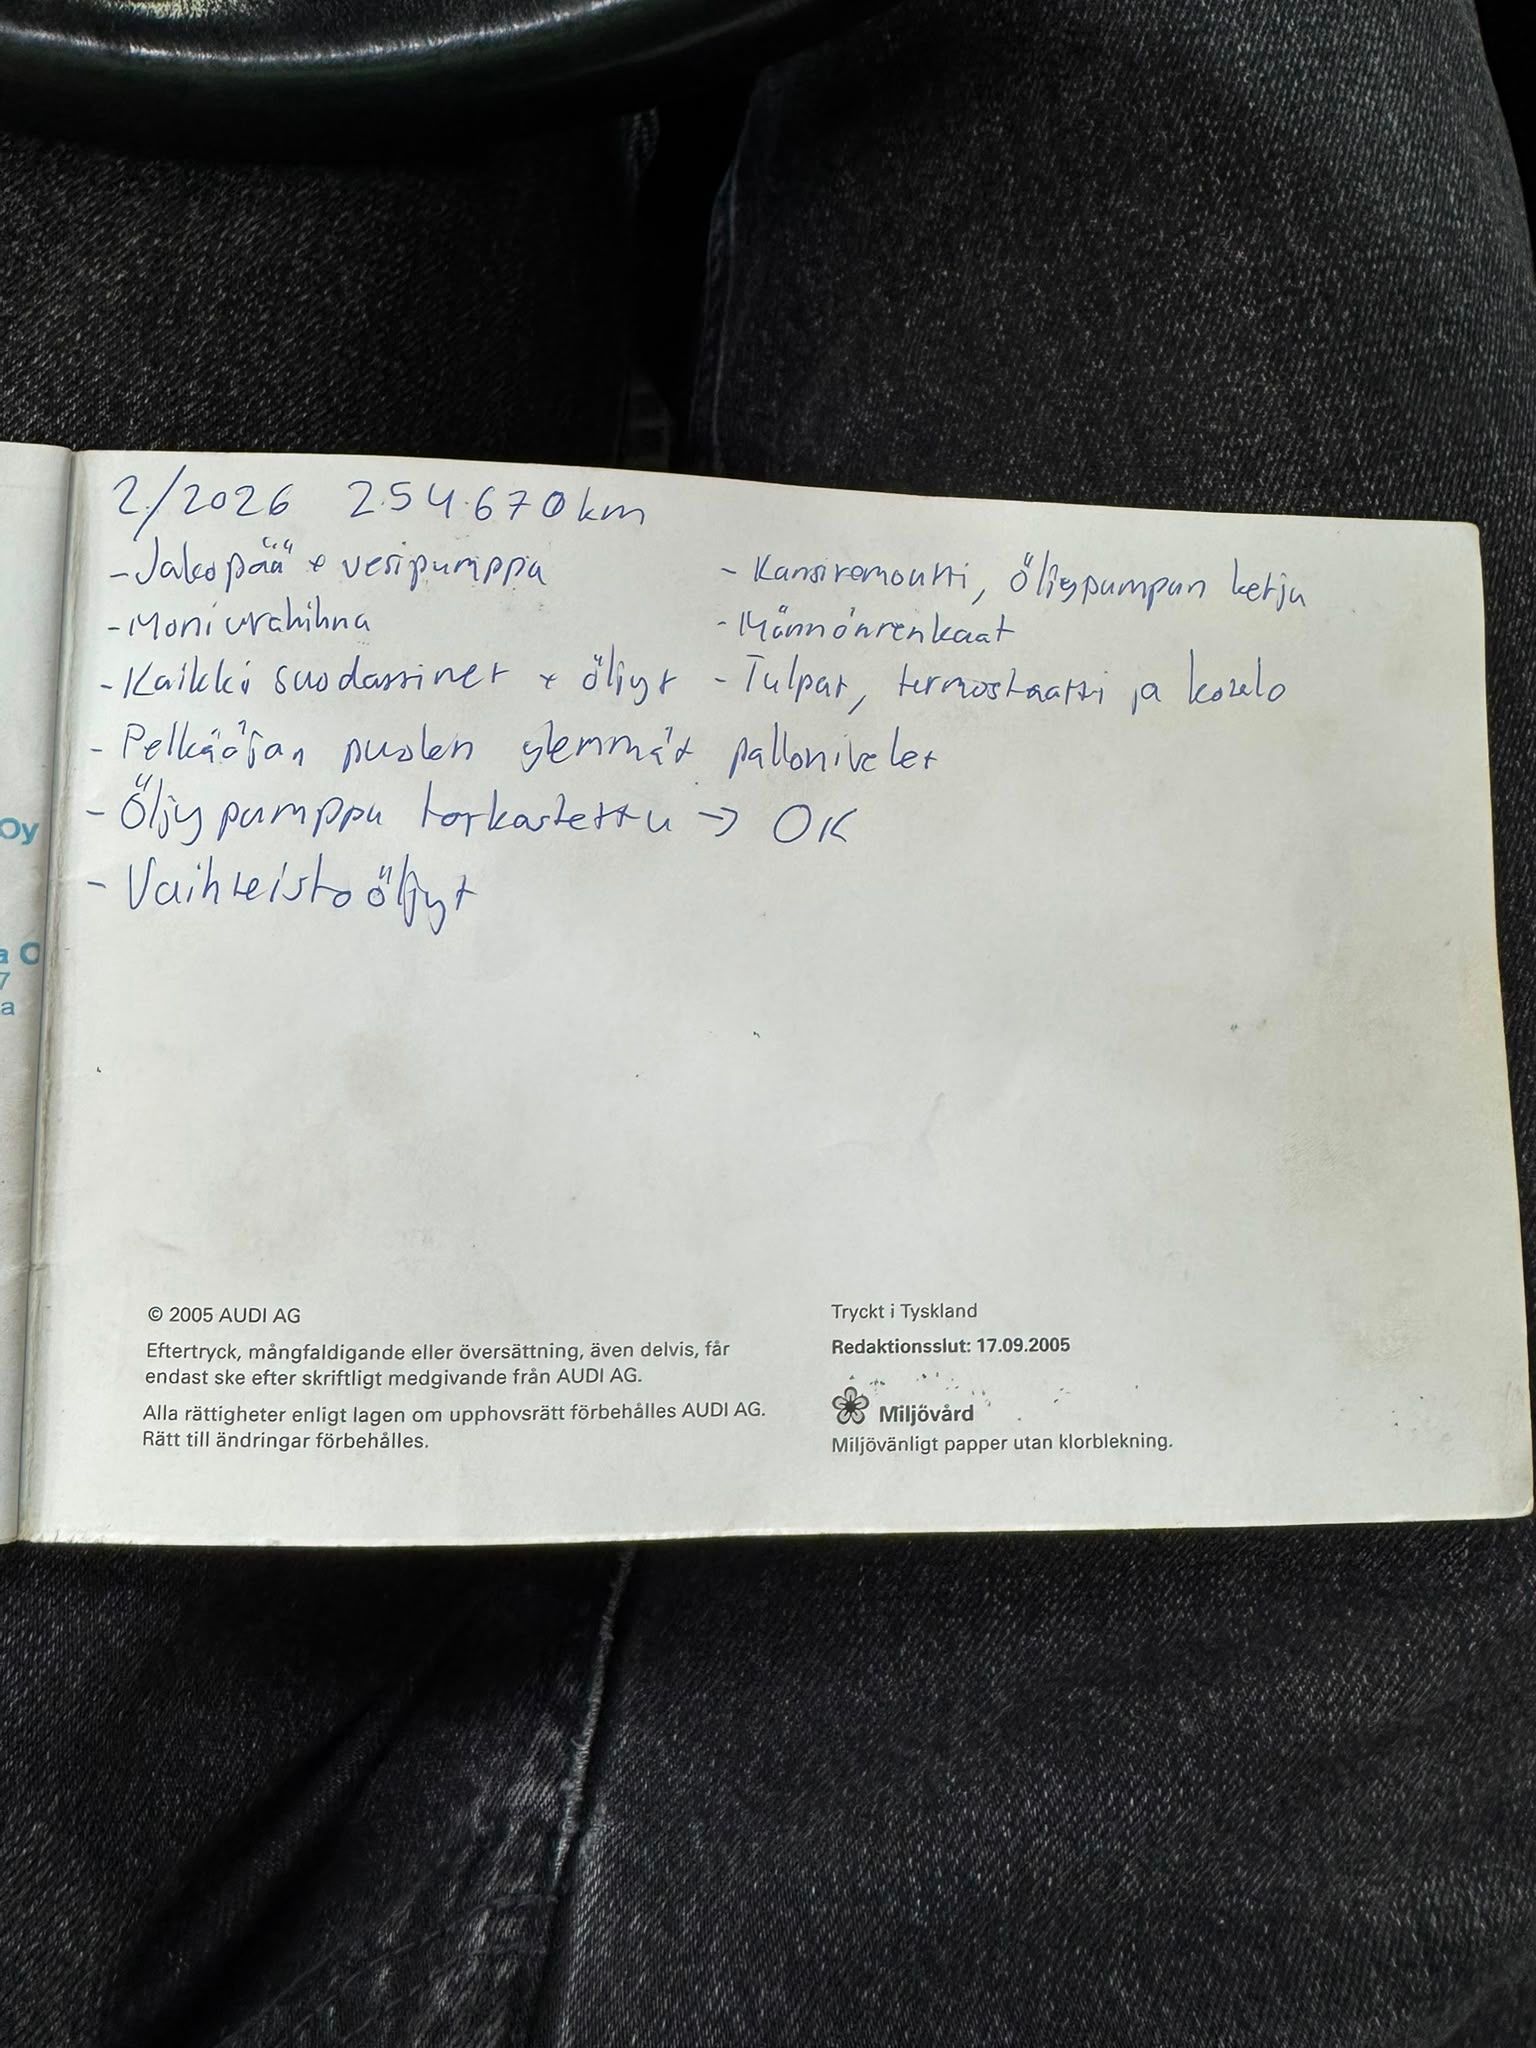 2/2026 254.670km
- Jakopää + vesipumppu
- Moniurahihna
- Kaikki suodattimet + öljyt
- Pelkääjän puolen ylemmät pallonivelet
- Öljypumppu tarkastettu → OK
- Vaihteistoöljyt
- Kansiremontti, öljypumpun ketju
- Männänrenkaat
- Tulpat, termostaatti ja kotelo
Oy
a O
7
a
© 2005 AUDI AG
Eftertryck, mångfaldigande eller översättning, även delvis, får
endast ske efter skriftligt medgivande från AUDI AG.
Alla rättigheter enligt lagen om upphovsrätt förbehålles AUDI AG.
Rätt till ändringar förbehålles.
Tryckt i Tyskland
Redaktionsslut: 17.09.2005
Miljövård
Miljövänligt papper utan klorblekning.